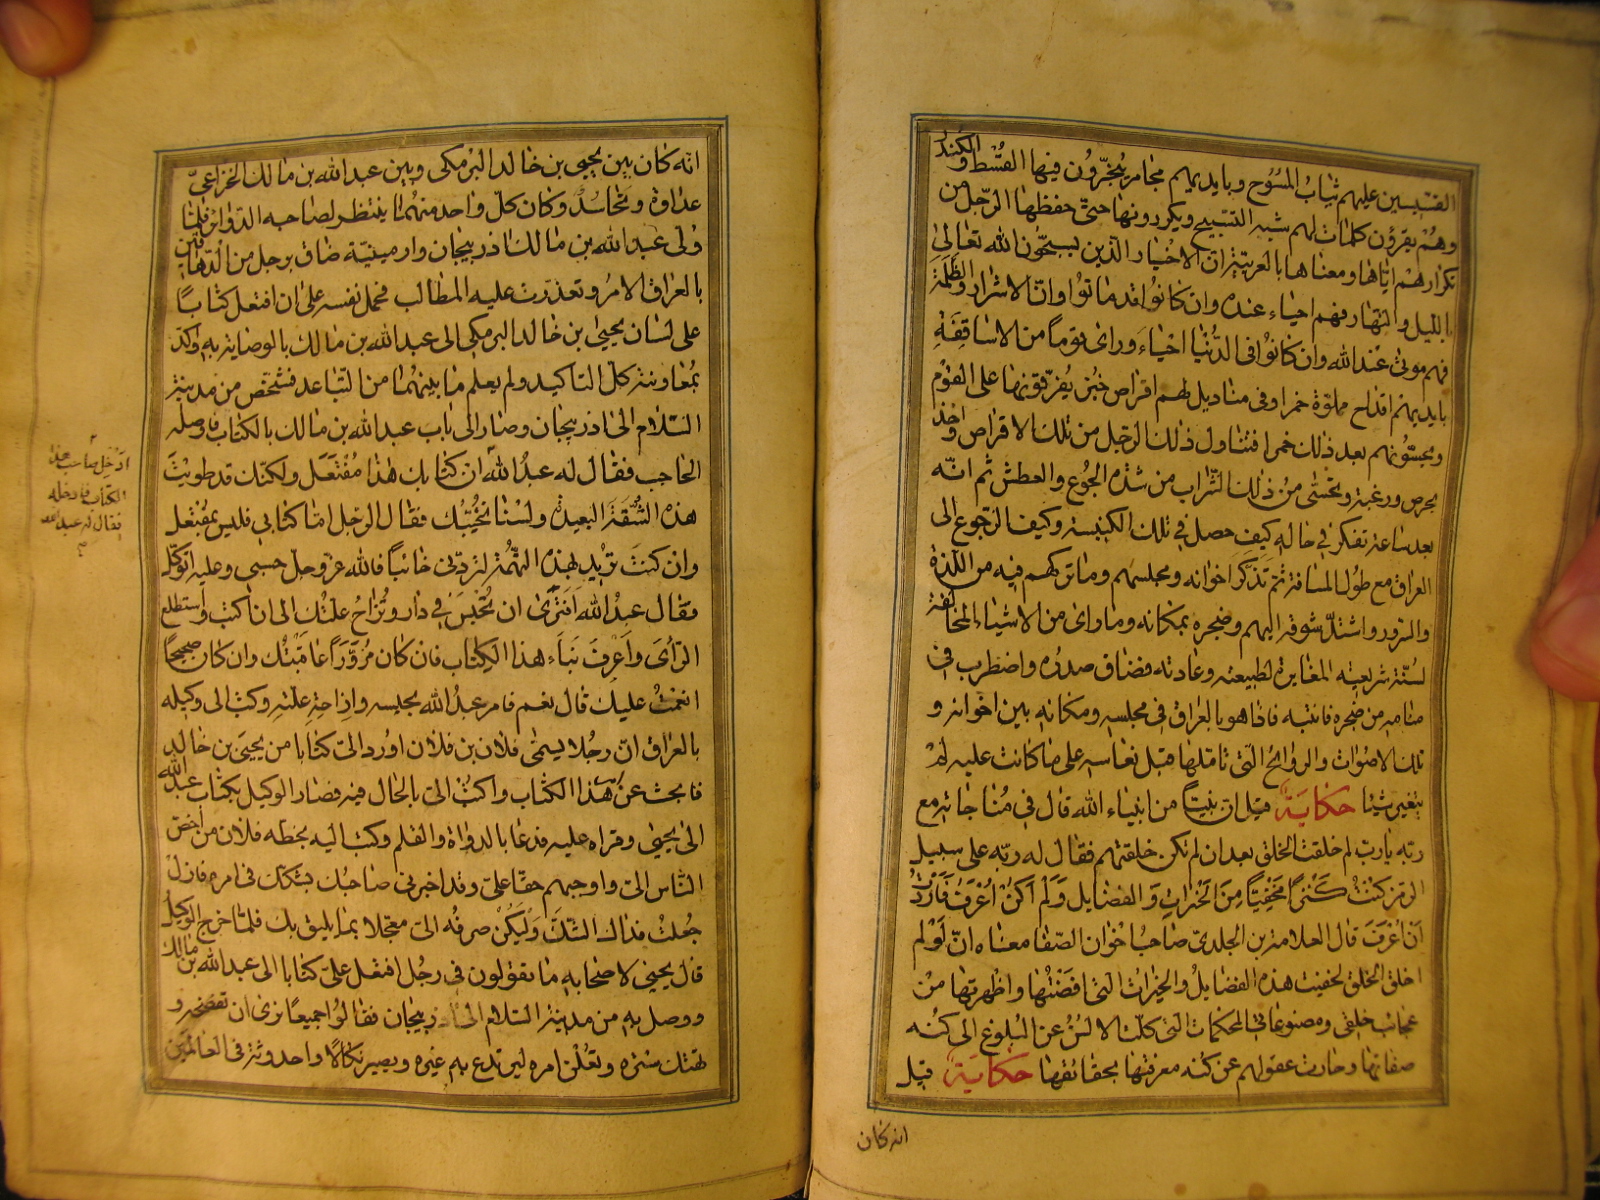 القسيسين عليهم ثياب المسوح وبايديهم مجامر يبخرون فيها القسط والكندر
وهم يقرؤن كلمات لهم شبه التسبيح ويكررونها حتى حفظها الرجل من
تكرارهم اياها ومعناها بالعربية ان الاخيار الذين يسبحون الله تعالى
بالليل والنهار فهم احياء عنده وان كانوا قد ماتوا وان الاشرار والظلمة
فهم موتى عند الله وان كانوا فى الدنيا احياء وراى قوما من الاساقفة
بايديهم اقداح مملوة خمرا وفى مناديل لهم اقراص خبز يفرقونها على القوم
ويحسونهم بعد ذلك خمرا فتناول ذلك الرجل من تلك الاقراص واخذ
بحرص ورغبة وتحسى من ذلك الشراب من شدة الجوع والعطش ثم انه
بعد ساعة تفكر في حاله كيف حصل في تلك الكنيسة وكيف الرجوع الى
العراق مع طول المسافة ثم تذكر اخوانه ومجلسهم وما تركهم فيه من اللذة
والسرور واشتد شوقه اليهم وضجره بمكانه وما راى من الاشياء المخالفة
لسنة شريعته المغايرة لطبيعته وعادته فضاق صدره واضطرب في
منامه من ضجره فانتبه فاذا هو بالعراق في مجلسه ومكانه بين اخوانه و
تلك الاصوات والروائح التى تاملها قبل نعاسه على ما كانت عليه لم
يتغير شيئا حكاية قيل ان نبيا من انبياء الله قال في مناجاته مع
ربه يارب لم خلقت الخلق بعد ان لم تكن خلقتهم فقال له ربه على سبيل
الرمز كنت كنزا مخفيا من الخيرات والفضايل ولم اكن اعرف فاردت
ان اعرف قال العلامة بن الجلدى صاحب اخوان الصفا معناه ان لو لم
اخلق الخلق لخفيت هذه الفضايل والخيرات التى افضتها واظهرتها من
عجائب خلقى ومصنوعاتى المحكمات التى كلت الالسن عن البلوغ الى كنه
صفاتها وحارت عقولهم عن كنه معرفتها بحقائقها حكاية قيل
انه كان
انه كان بين يحيى بن خالد البرمكى وبين عبد الله بن مالك الخزاعى
عداوة وتحاسد وكان كل واحد منهما ينتظر لصاحبه الدوائر فلما
ولى عبد الله بن مالك اذربيجان وارمينية ضاق برجل من
بالعراق الامر وتعذرت عليه المطالب فحمل نفسه على ان افتعل كتابا
على لسان يحيى بن خالد البرمكى الى عبد الله بن مالك بالوصاية به واكد
بمعاونته كل التاكيد ولم يعلم ما بينهما من التباعد فشخص من مدينة
السلام الى اذربيجان وصار الى باب عبد الله بن مالك بالكتاب فاوصله
الحاجب فقال له عبد الله ان كتابك هذا مفتعل ولكنك قد طويت
هذه الشقة البعيدة ولسنا نخيبك فقال الرجل اما كتابى فليس بمفتعل
وان كنت تريد بهذه التهمة لتردنى خائبا فالله عز وجل حسبى وعليه اتوكل
فقال عبد الله افترى ان تحبس في دار وتزاح علتك الى ان اكتب واستطلع
الراى واعرف نباء هذا الكتاب فان كان مزورا عاقبتك وان كان صحيحا
انعمت عليك قال نعم فامر عبد الله بحبسه وازاحة علته وكتب الى وكيله
بالعراق ان رجلا يسمى فلان بن فلان اورد الى كتابا من يحيى بن خالد
فابحث عن هذا الكتاب واكتب الى بالحال فيه فصار الوكيل بكتاب عبد الله
الى يحيى وقراه عليه فدعا بالدواة والقلم وكتب اليه بخطه فلان من اخص
الناس الى واوجبهم حقا على وقد اخبرنى صاحبك بشكك فى امره فازل
جعلت فداك الشك وليكن صرفه الى معجلا بما يليق بك فلما خرج الوكيل
قال يحيى لاصحابه ما تقولون في رجل افتعل على كتابا الى عبد الله بن مالك
ووصل به من مدينة السلام الى اذربيجان فقالوا جميعا نرى ان تفضحه و
تهتك ستره وتعلن امره ليرتدع به غيره ويصير نكالا واحدوثة فى العالمين
ادخل صاحب هذا
الكتاب فادخله
فقال له عبد الله